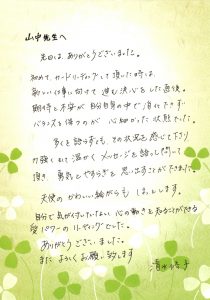 山中先生へ
先日は、ありがとうございました。
初めて、カードリーディングをして頂いた時は、
新しい仕事に向けて進む決心をした直後。
期待と不安が自分自身の中で消化できず
バランスを保つのが心細かった状態でした。
多くを語らずも、その状況を感じて下さり
力強くも温かくメッセージを語って
頂き 勇気とやすらぎを 思い出すことができました。
天使のかわいい絵がらも ほっとします。
自分で気がついていない 心の動きを 知ることができる
愛パワーのリーディングでした。
ありがとうございました。
また よろしくお願い致します
清水